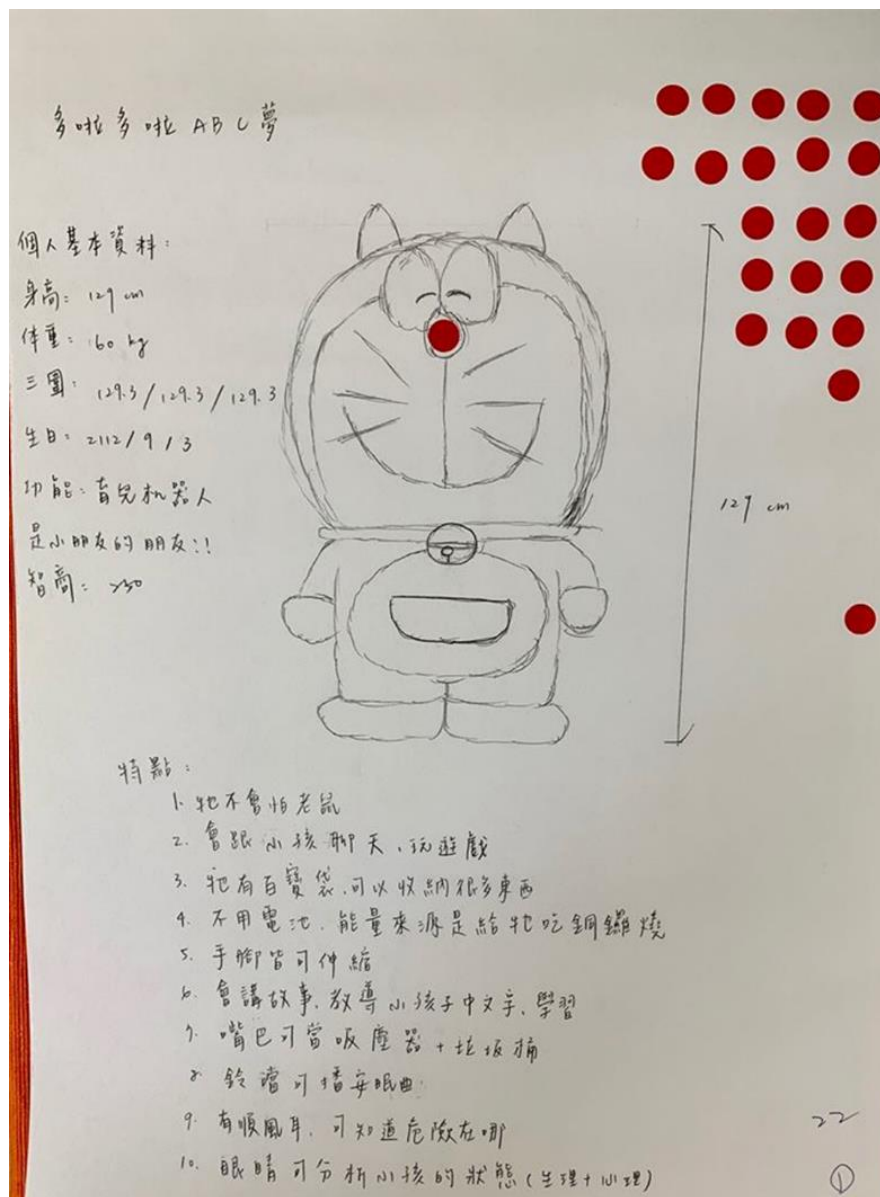 多啦多啦 ABC夢
個人基本資料:
身高: 129 cm
体重: 160 kg
三圍: 129.3 / 129.3 / 129.3
生日: 2112 / 9 / 3
功能: 育兒机器人
是小朋友的朋友!!
智商: 250
129 cm
特點:
1. 牠不會怕老鼠
2. 會跟小孩聊天、玩遊戲
3. 牠有百寶袋,可以收納很多東西
4. 不用電池,能量來源是給牠吃銅鑼燒
5. 手腳皆可伸縮
6. 會講故事、教導小孩子中文字、學習
7. 嘴巴可當吸塵器+垃圾桶
8. 鈴鐺可播安眠曲
9. 有順風耳,可知道危險在哪
10. 眼睛可分析小孩的狀態(生理+心理)
22
①